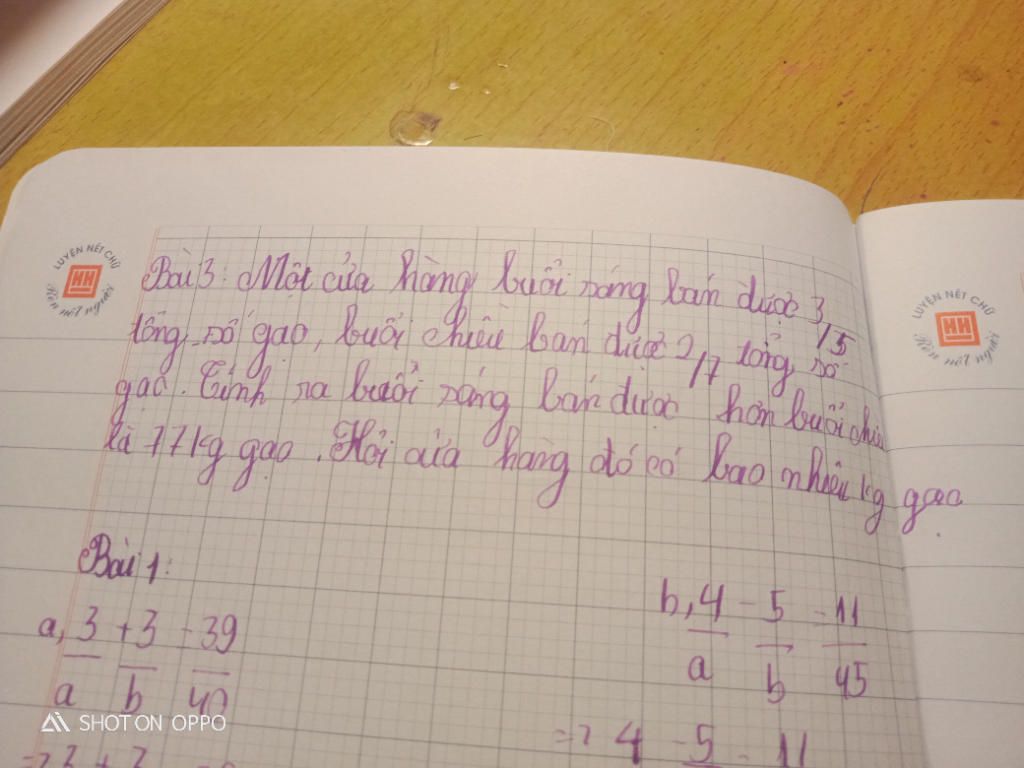 LUYỆN NÉT CHỮ
HH
Rèn nết người
LUYỆN NÉT CHỮ
HH
Rèn nết người
Bài 3: Một cửa hàng buổi sáng bán được 3/5
tổng số gạo, buổi chiều bán được 2/7 tổng số
gạo. Tính ra buổi sáng bán được hơn buổi chiều
là 77kg gạo. Hỏi cửa hàng đó có bao nhiêu kg gạo.
Bài 1:
a, 3/a + 3/b = 39/40
b, 4/a - 5/b = 11/45
=> 4 - 5 = 11
SHOT ON OPPO